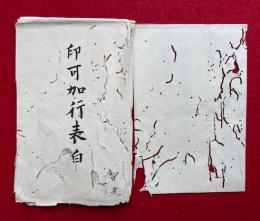 印可加行表白